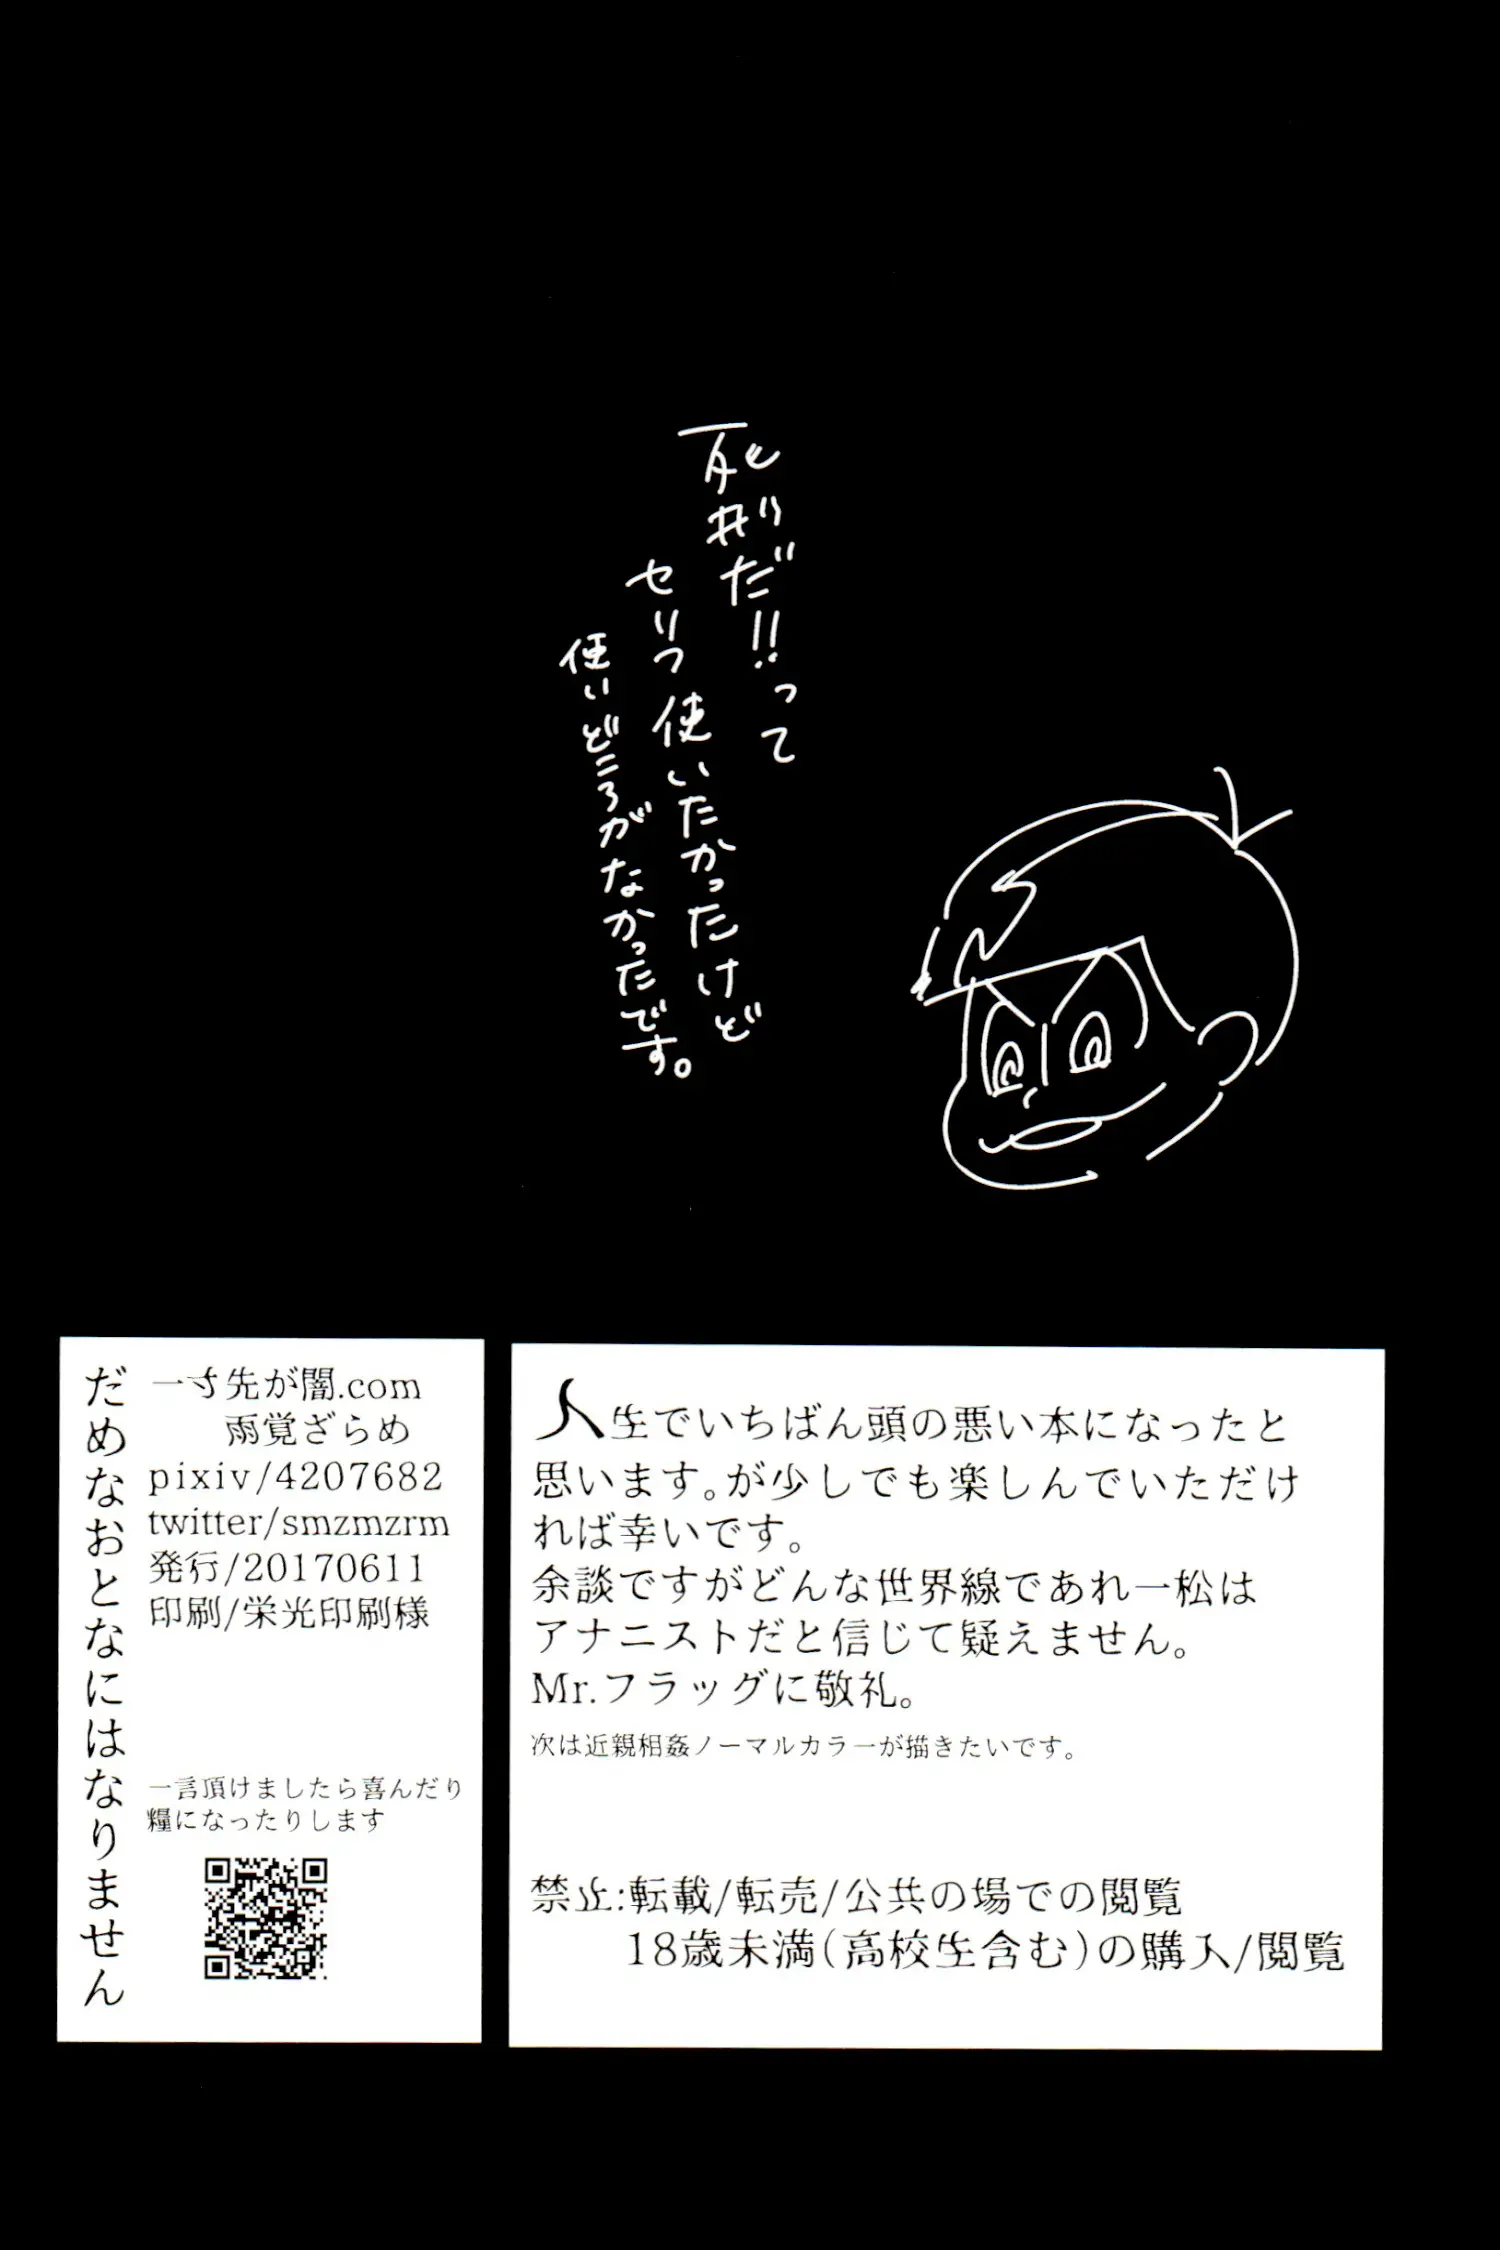 死刑だ!!って
セリフ使いたかったけど
使いどころがなかったです。
人生でいちばん頭の悪い本になったと
思います。が少しでも楽しんでいただけ
れば幸いです。
余談ですがどんな世界線であれ一松は
アナニストだと信じて疑えません。
Mr.フラッグに敬礼。
次は近親相姦ノーマルカラーが描きたいです。
禁止:転載/転売/公共の場での閲覧
18歳未満(高校生含む)の購入/閲覧
だめなおとなにはなりません
一寸先が闇.com
雨覚ざらめ
pixiv/4207682
twitter/smzmzrm
発行/20170611
印刷/栄光印刷様
一言頂けましたら喜んだり
糧になったりします